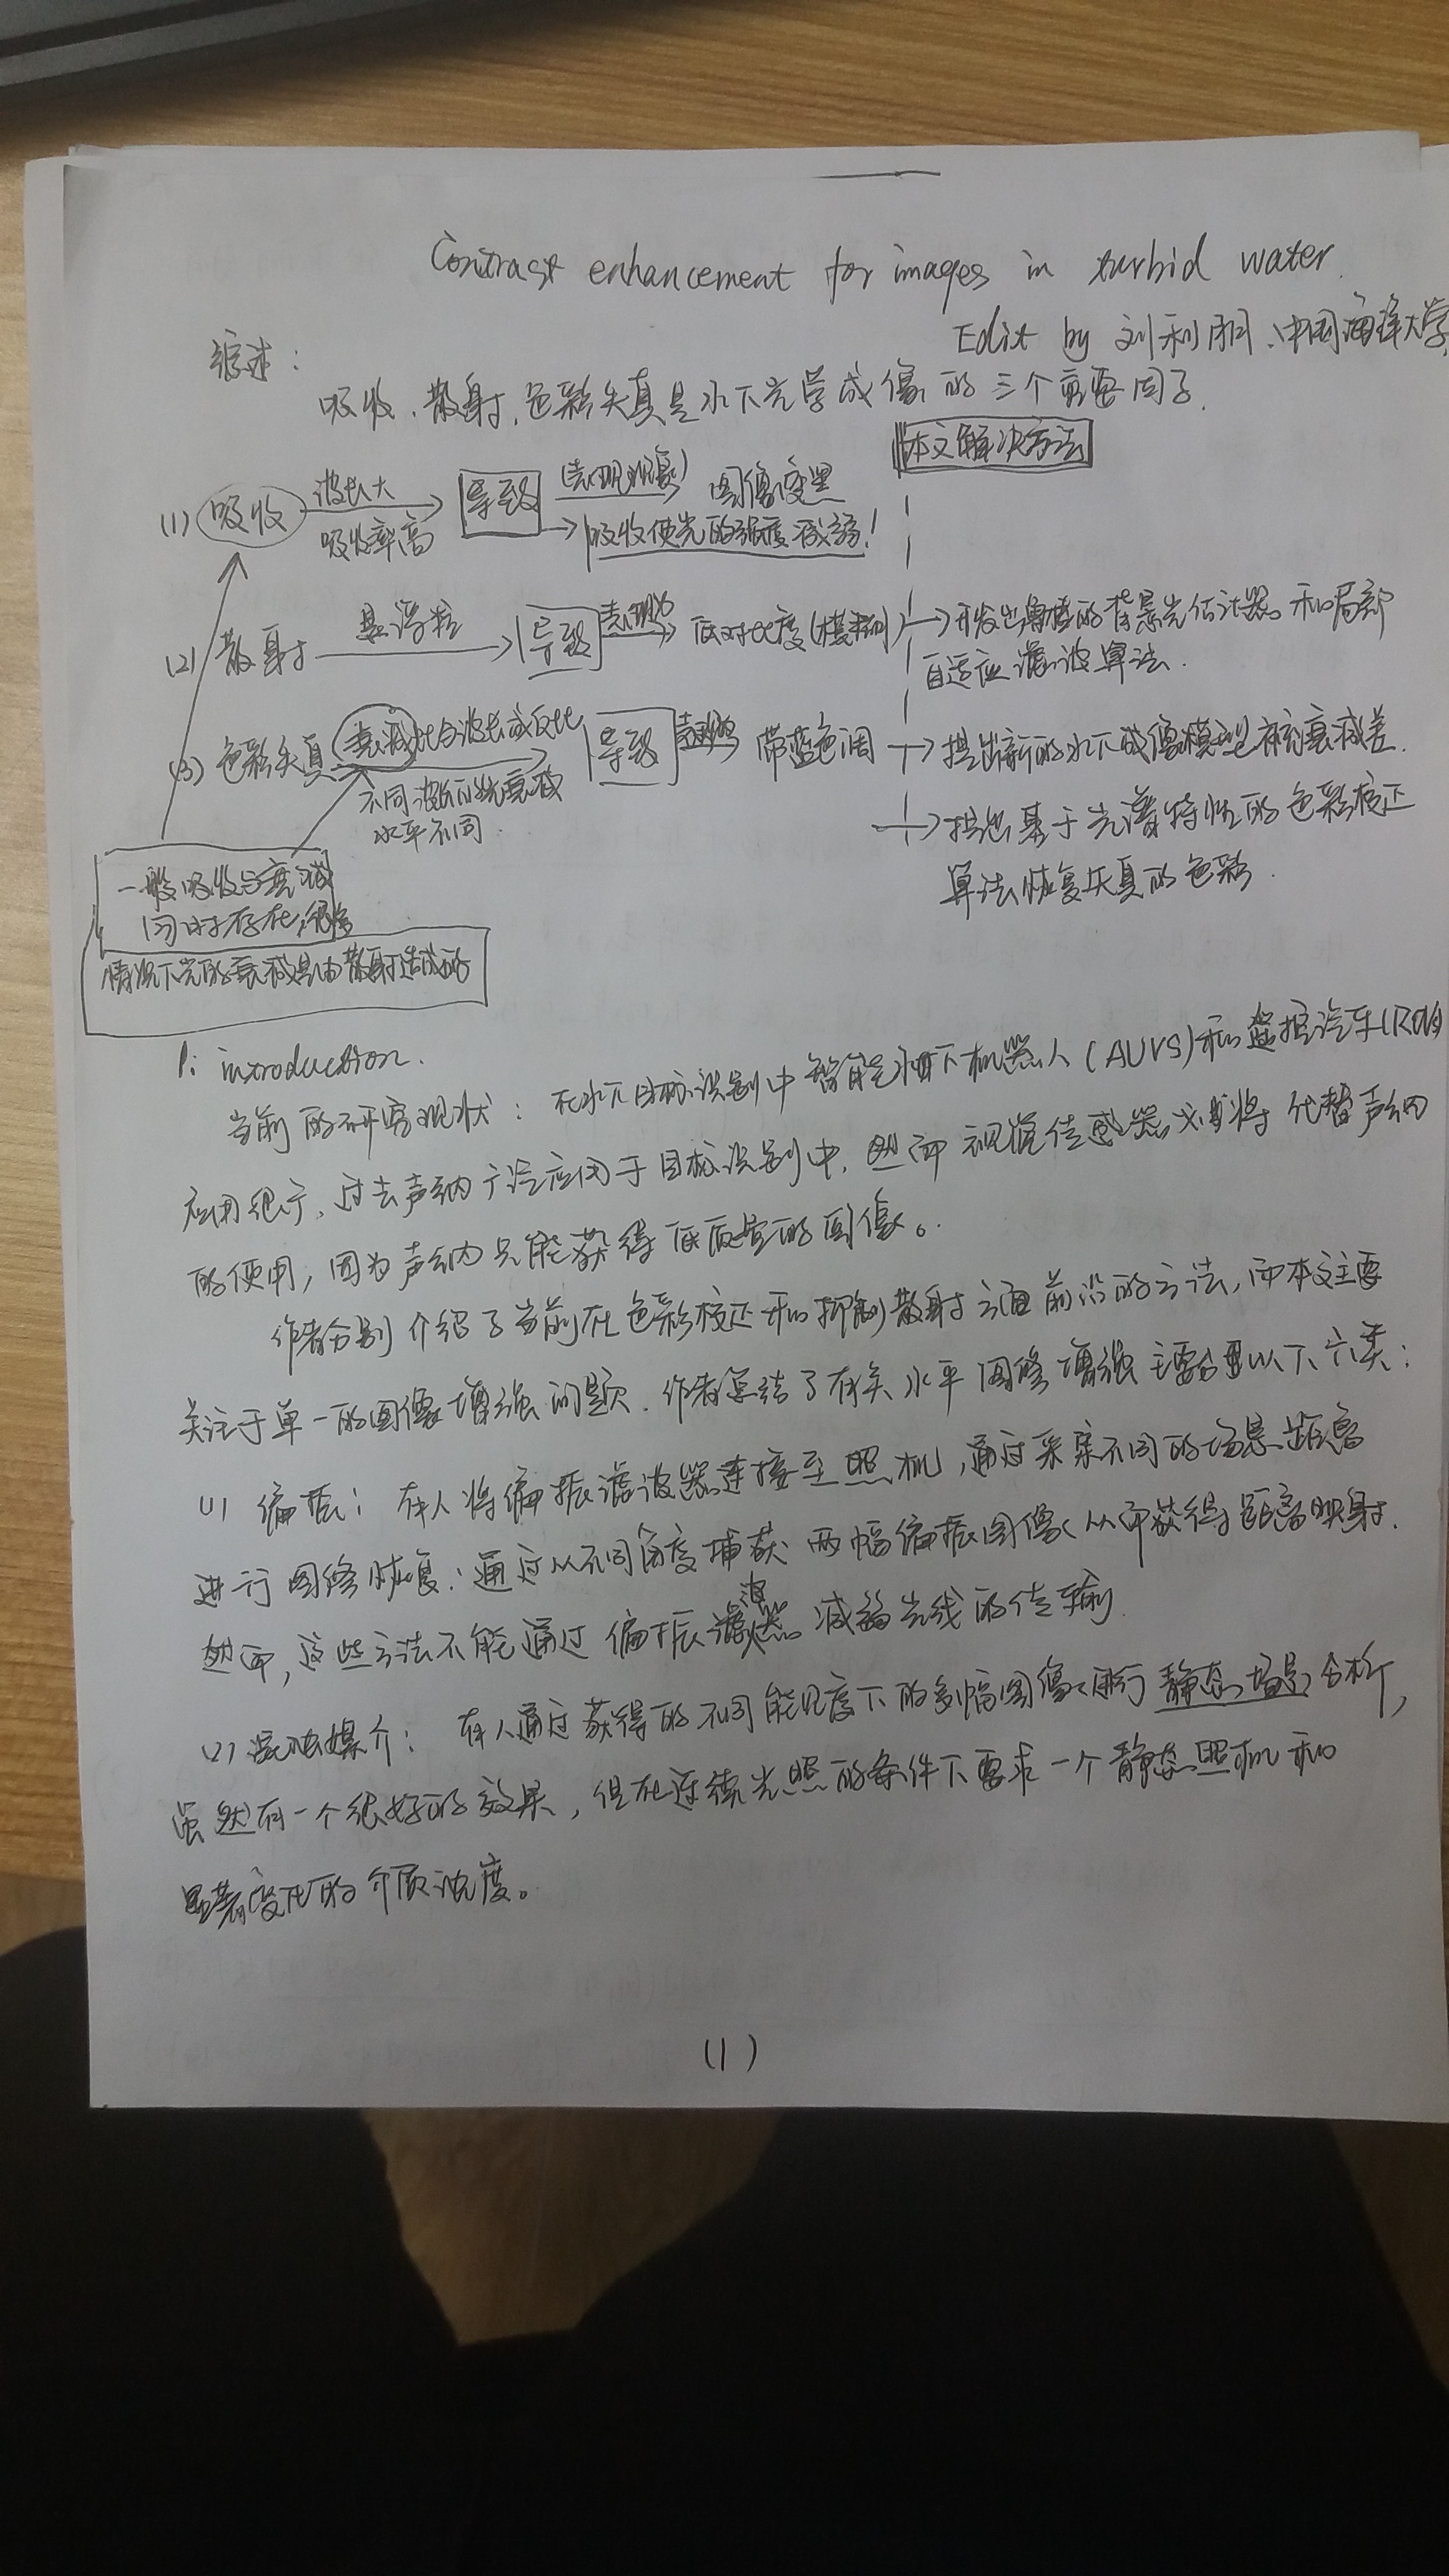 Contrast enhancement for images in turbid water.
Edit by 刘利刚、中国海洋大学
综述：
吸收、散射、色彩失真是水下光学成像的三个重要因子.
本文解决方法
(1) 吸收 波长大 吸收率高 导致 (表现现象) 图像变黑
吸收使光的强度减弱！
(2) 散射 悬浮粒 导致 表现为 低对比度(模糊) 开发出鲁棒的背景光估计器。和局部
自适应滤波算法.
(3) 色彩失真 衰减 波长成反比 导致 表现为 带蓝色调 提出新的水下成像模型 衰减差.
不同波长的光衰减
水平不同.
提出基于光谱特性的色彩校正
算法恢复失真的色彩.
一般吸收与衰减
同时存在,很多
情况下光的衰减是由散射造成的
1: introduction.
当前的研究现状： 在水下目标识别中智能水下机器人(AUVS)和遥控汽车(ROVs)
应用很广, 过去声纳广泛应用于目标识别中, 然而视觉传感器 将代替声纳
的使用, 因为声纳只能获得低质量的图像。
作者分别介绍了当前在色彩校正和抑制散射方面前沿的方法, 而本文主要
关注于单一的图像增强问题. 作者总结了有关水平图像增强 主要 以下六类：
(1) 偏振： 有人将偏振滤波器连接至照机, 通过采集不同的场景距离
进行图像恢复： 通过从不同角度捕获两幅偏振图像 从而获得距离映射.
然而, 这些方法不能通过偏振滤波器减弱光线的传输.
(2) 混浊媒介： 有人通过获得的不同能见度下的多幅图像 进行静态场景分析,
虽然有一个很好的效果, 但在连续光照的条件下要求一个静态照机和
显著变化的介质浓度。
(1)